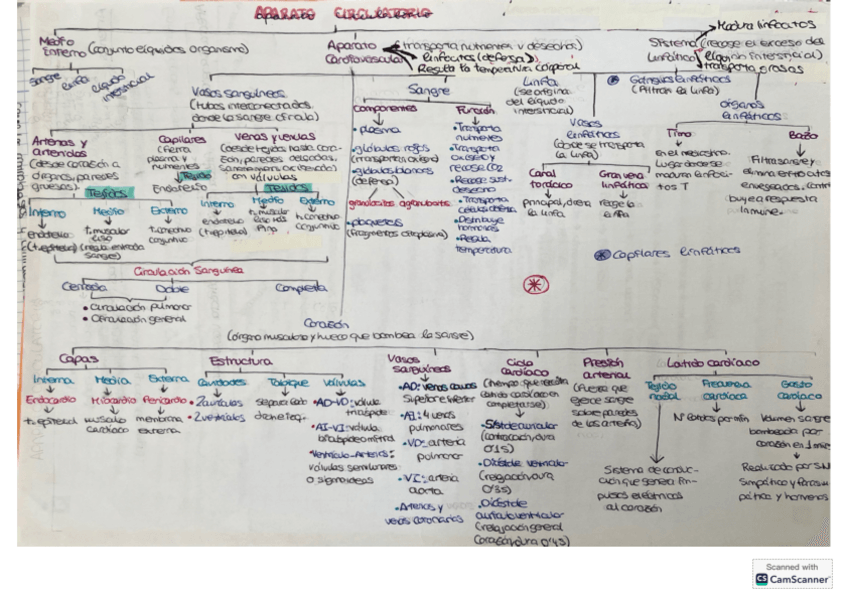 APARATO CIRCULATORIO
Medio
Interno (conjunto líquidos organismo)
sangre
linfa
líquido
intersticial
Aparato
Cardiovascular
(transporta nutrientes y desechos)
linfocitos (defensa)
Regula la temperatura corporal
Madura linfocitos
Sistema
linfático
(recoge el exceso del
líquido intersticial)
transporta grasas
Vasos sanguíneos
(tubos interconectados
donde la sangre circula)
Arterias y
arteriolas
(desde corazón a
órganos, paredes
gruesas)
Tejidos
Interno
endotelio
(t. epitelial)
Medio
t. muscular
liso
(regula entrada
sangre)
Externo
t. conectivo
conjuntivo
Capilares
(Filtra
plasma y
nutrientes)
Tejido
Endotelio
Venas y vénulas
(desde tejidos hasta cora-
zón, paredes delgadas,
con válvulas
Tejidos
Interno
endotelio
(t. epitelial)
Medio
t. muscular
liso más
fina
Externo
t. conectivo
conjuntivo
Sangre
Componentes
• plasma
• glóbulos rojos
(transportan oxígeno)
• glóbulos blancos
(defensa)
granulocitos agranulocitos
• plaquetas
(fragmentos citoplasma)
Función
• Transporta
nutrientes
• Transporta
oxígeno y
recoge CO2
• Recoge sust.
desecho
• Transporta
células defensa
• Distribuye
hormonas
• Regula
temperatura
Linfa
(se origina
del líquido
intersticial)
Vasos
linfáticos
(donde se transporta
la linfa)
Canal
torácico
principal, drena
la linfa
Gran vena
linfática
recoge la
linfa
Ganglios linfáticos
(Filtran la linfa)
Órganos
linfáticos
Timo
En el mediastino.
Lugar donde se
maduran linfoci-
tos T
Bazo
Filtra sangre y
elimina eritrocitos
envejecidos, contri
buye a respuesta
inmune.
Capilares linfáticos
Circulación Sanguínea
Cerrada
Doble
Completa
• Circulación pulmonar
• Circulación general
Corazón
(órgano muscular y hueco que bombea la sangre)
Capas
Interna
Endocardio
t. epitelial
Media
Miocardio
músculo
cardíaco
Externa
Pericardio
membrana
externa
Estructura
Cavidades
• 2 aurículas
• 2 ventrículos
Tabique
separa lado
dcho e izq.
Válvulas
• AD-VD: válvula
tricúspide
• AI-VI: válvula
bicúspide o mitral
• Ventrículo-Arterias:
válvulas semilunares
o sigmoideas
Vasos
sanguíneos
• AD: venas cavas
superior e inferior
• AI: 4 venas
pulmonares
• VD: arteria
pulmonar
• VI: arteria
aorta
• Arterias y
venas coronarias
Ciclo
cardíaco
(tiempo que necesita
latido cardíaco en
completarse)
• Sístole auricular
(contracción, dura
0'15)
• Diástole ventricular
(relajación, dura
0'35)
• Diástole
auriculoventricular
(relajación general
corazón, dura 0'45)
Presión
arterial
(Fuerza que
ejerce sangre
sobre paredes
de las arterias)
Latido cardíaco
Tejido
nodal
Sistema de conduc-
ción que genera im-
pulsos eléctricos
al corazón
Frecuencia
cardíaca
Nº latidos por min
Gasto
cardíaco
Volumen sangre
bombeada por
corazón en 1 min
Realizado por SN
simpático y parasim
pático y hormonas
Scanned with
CS CamScanner